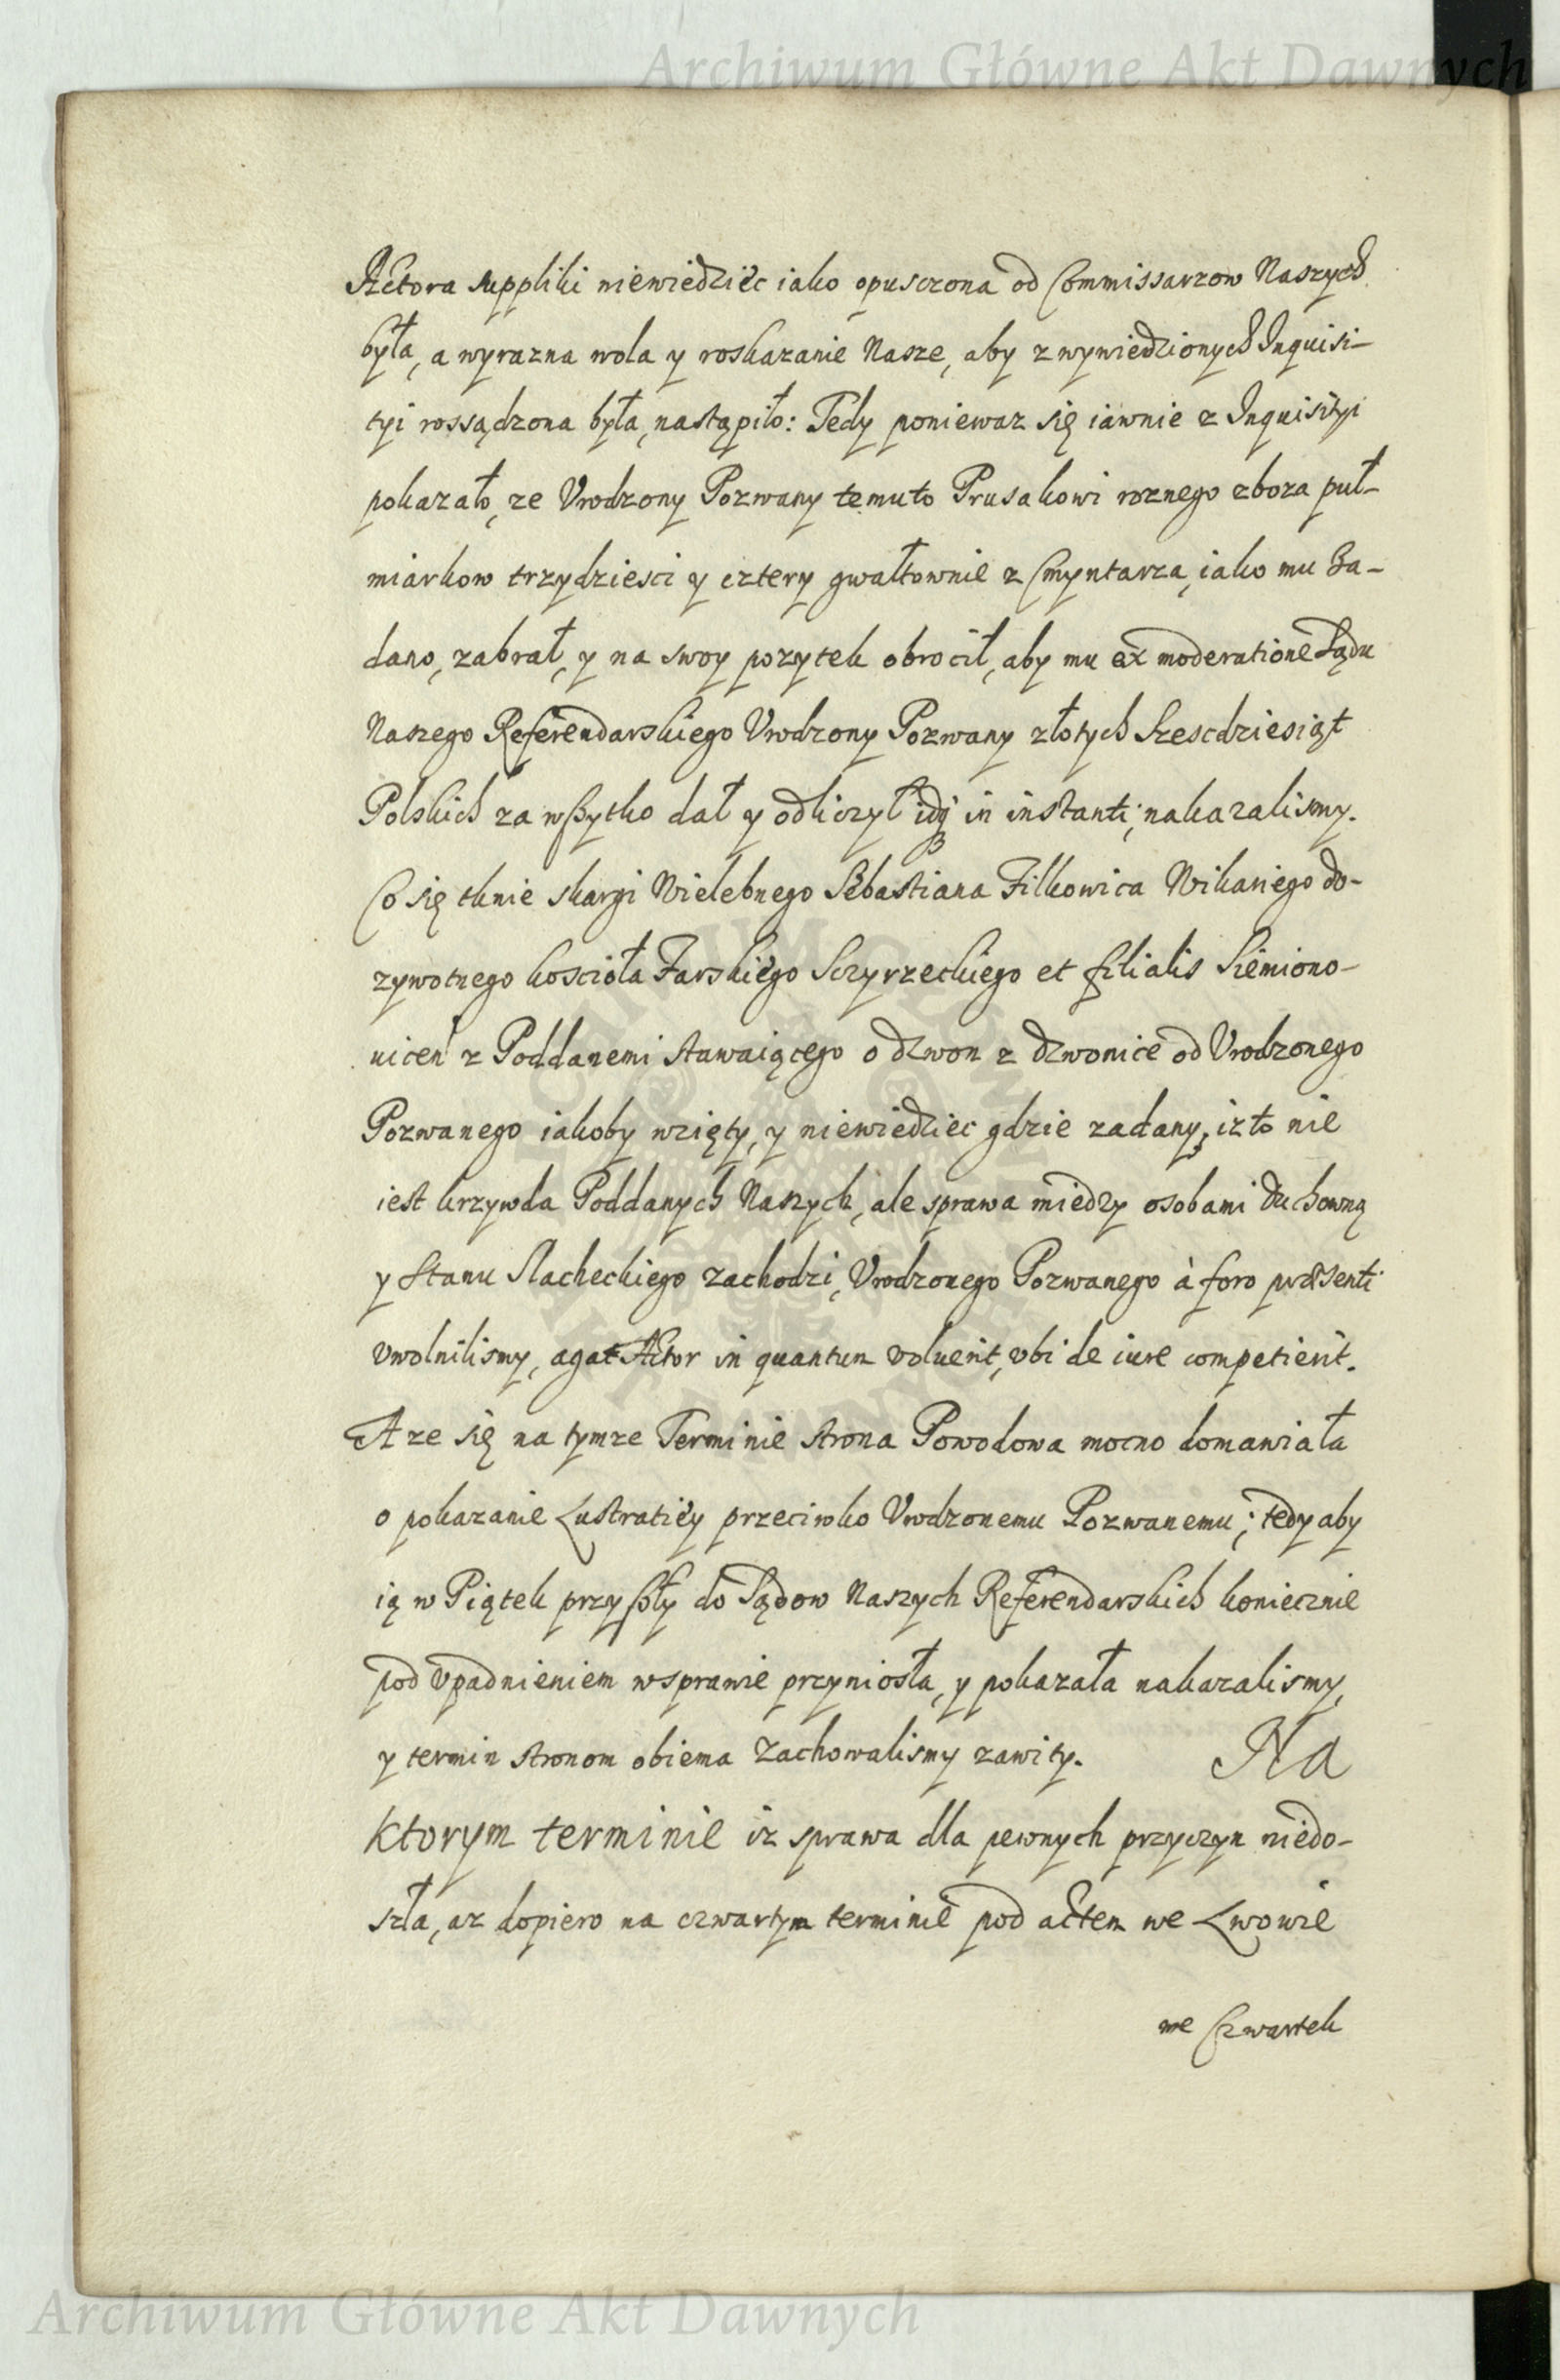 Archiwum Główne Akt Dawnych
Actora suppliki niewiedziec iako opusczona od Commissarzow Naszych
była, a wyrazna wola y roskazanie Nasze, aby z wywiedzionych Inquisi-
tyi rossądzona była, nastąpiło: Tedy poniewaz się iawnie z Inquisityi
pokazało, ze Vrodzony Pozwany temuto Prusakowi roznego zboza puł-
miarkow trzydziesci y cztery gwałtownie z Cmyntarza, iako mu za-
dano, zabrał, y na swoy pozytek obrocił, aby mu ex moderatione Sądu
Naszego Referendarskiego Vrodzony Pozwany złotych szescdziesiąt
Polskich za wszytko dał y odliczył idq3 in instanti, nakazalismy.
Co się tknie skargi Wielebnego Sebastiana Filkowica Wikariego do-
zywotnego koscioła Farskiego Sczyrzeckiego et filialis Siemiono-
uicen z Poddanemi stawaiącego o dzwon z dzwonice od Vrodzonego
Pozwanego iakoby wzięty, y niewiedziec gdzie zadany, iz to nie
iest krzywda Poddanych Naszych, ale sprawa miedzy osobami duchowną
y stanu slacheckiego zachodzi, Vrodzonego Pozwanego à foro præsenti
vwolnilismy, agat Actor in quantum voluerit, vbi de iure competierit.
A ze się na tymze Terminie strona Powodowa mocno domawiała
o pokazanie Lustratiey przeciwko Vrodzonemu Pozwanemu; tedy aby
ią w Piątek przyszły do Sądow Naszych Referendarskich koniecznie
pod vpadnieniem w sprawie przyniosła, y pokazała nakazalismy,
y termin stronom obiema zachowalismy zawity. Na
ktorym terminie iz sprawa dla pewnych przyczyn niedo-
szła, az dopiero na czwartym terminie pod actem we Lwowie
we Czwartek
Archiwum Główne Akt Dawnych